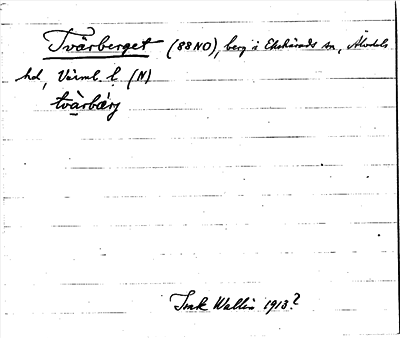 Tvärberget (88NO), berg i Ekshärads sn, Älvdals
hd, Värml. l. (N)
tvä̀rbær̀j
Isak Wallin 1913?